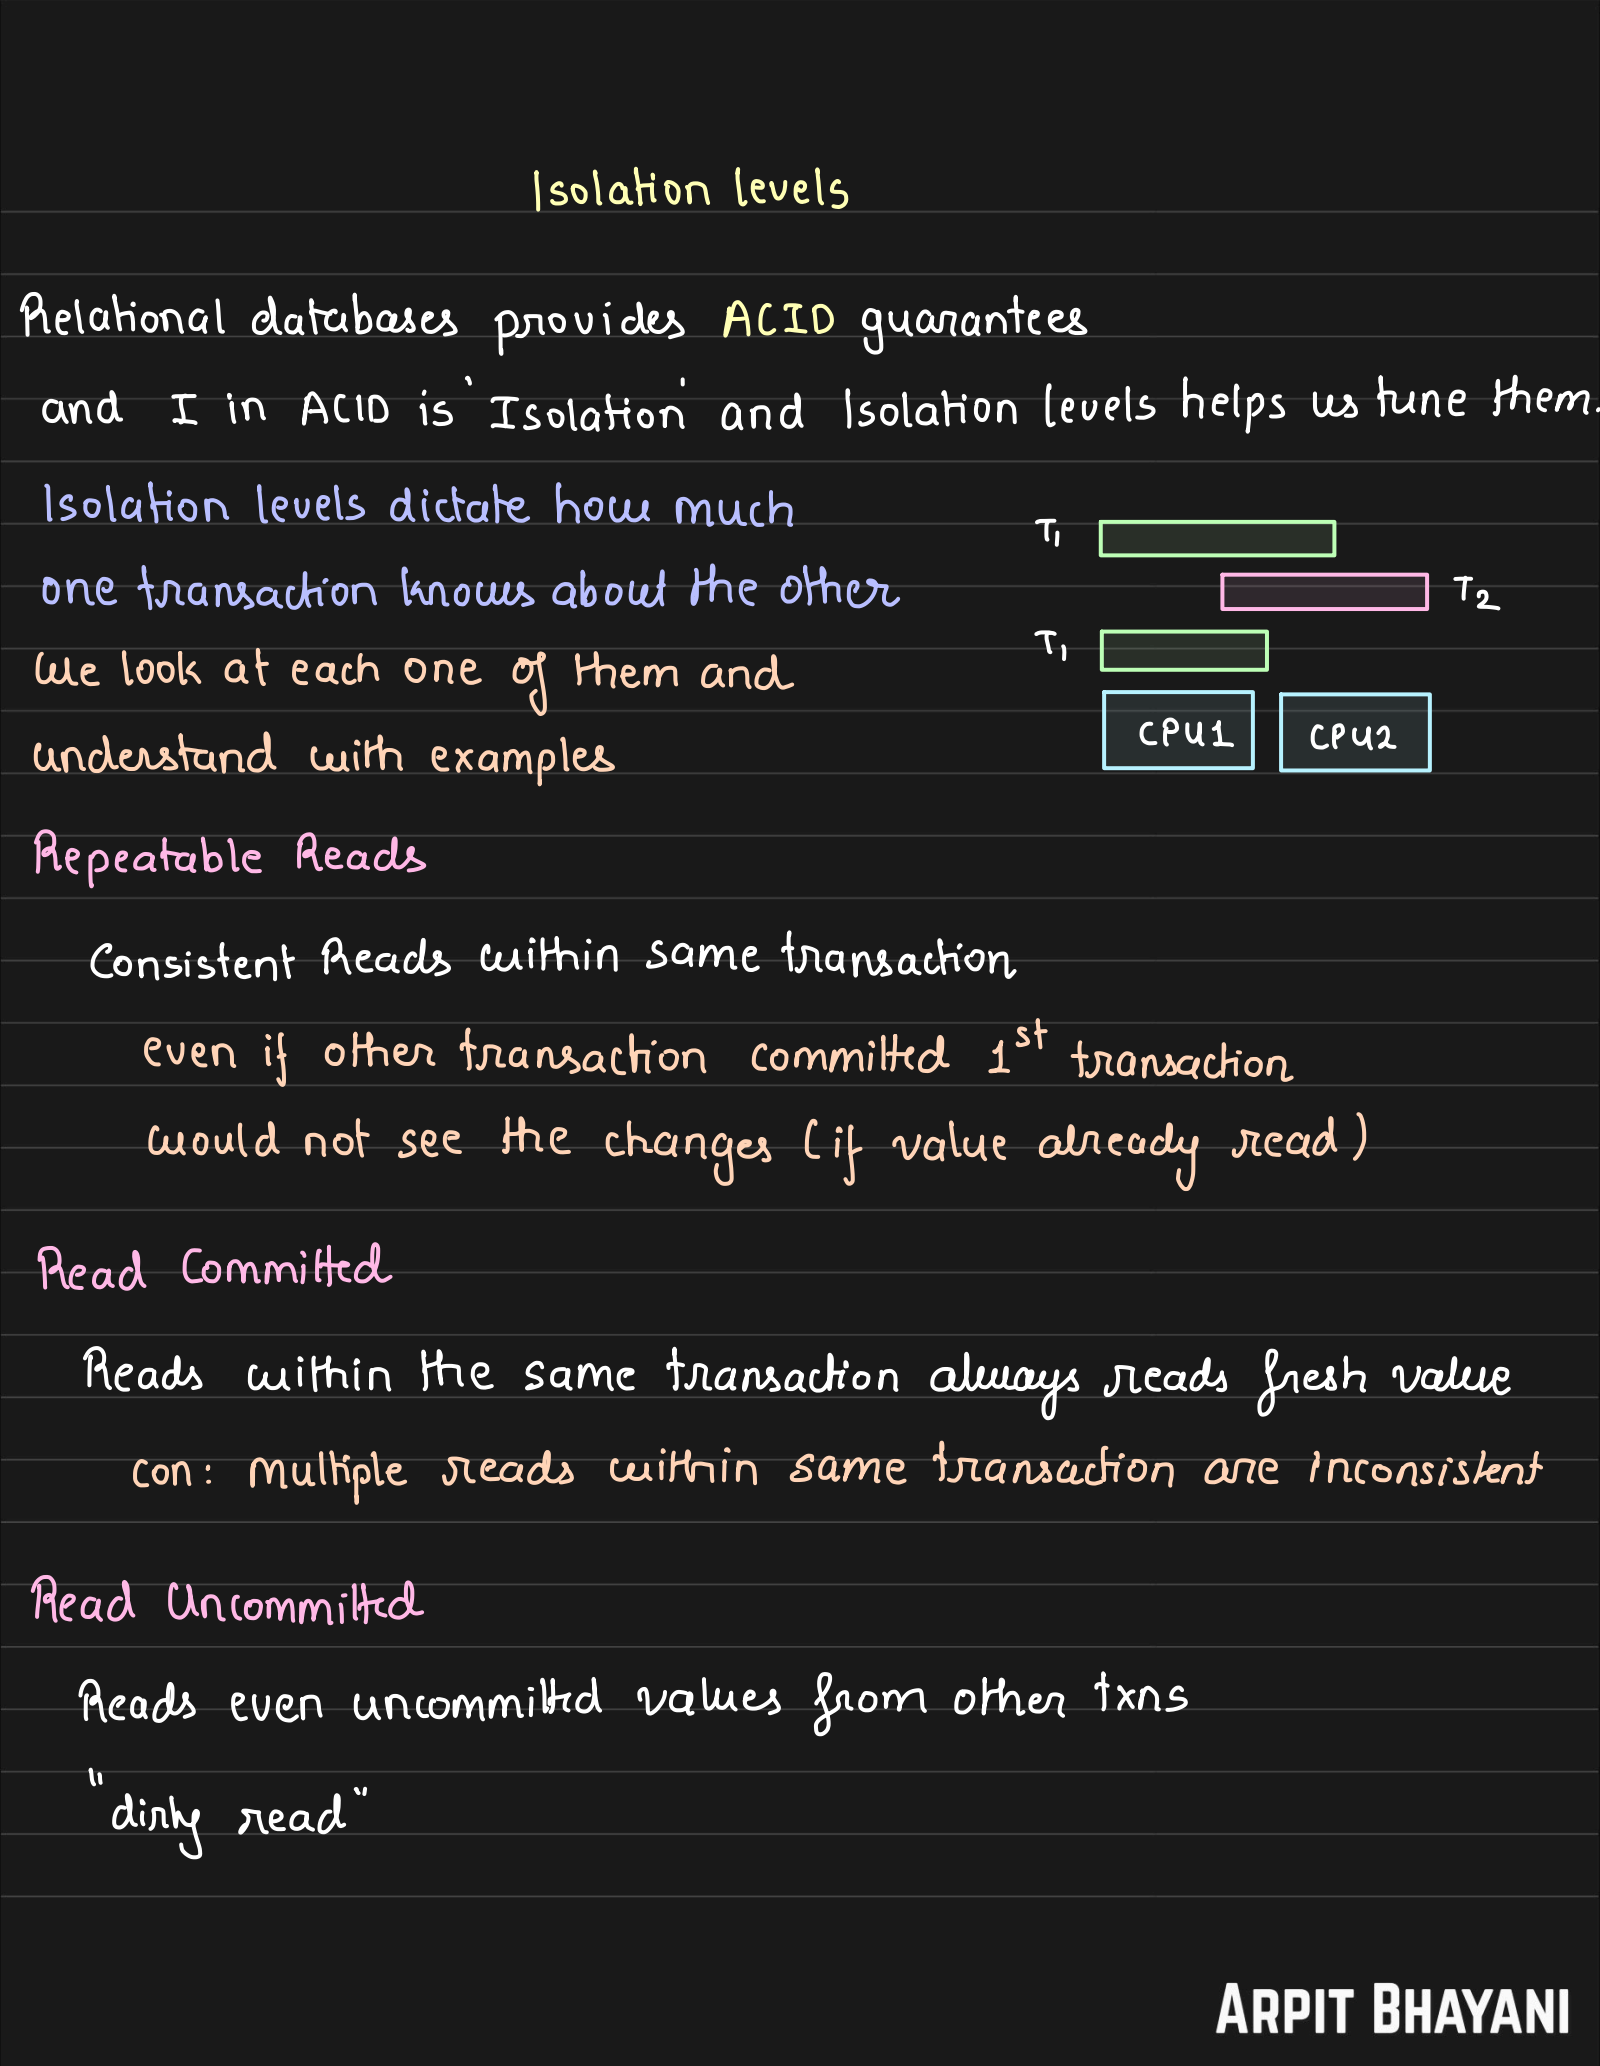 Isolation levels
Relational databases provides ACID guarantees
and I in ACID is 'Isolation' and Isolation levels helps us tune them.
Isolation levels dictate how much
one transaction knows about the other
T1
T2
we look at each one of them and
T1
understand with examples
CPU1 CPU2
Repeatable Reads
Consistent Reads within same transaction
even if other transaction committed 1st transaction
would not see the changes (if value already read)
Read Committed
Reads within the same transaction always reads fresh value
con: multiple reads within same transaction are inconsistent
Read Uncommitted
Reads even uncommitted values from other txns
"dirty read"
ARPIT BHAYANI